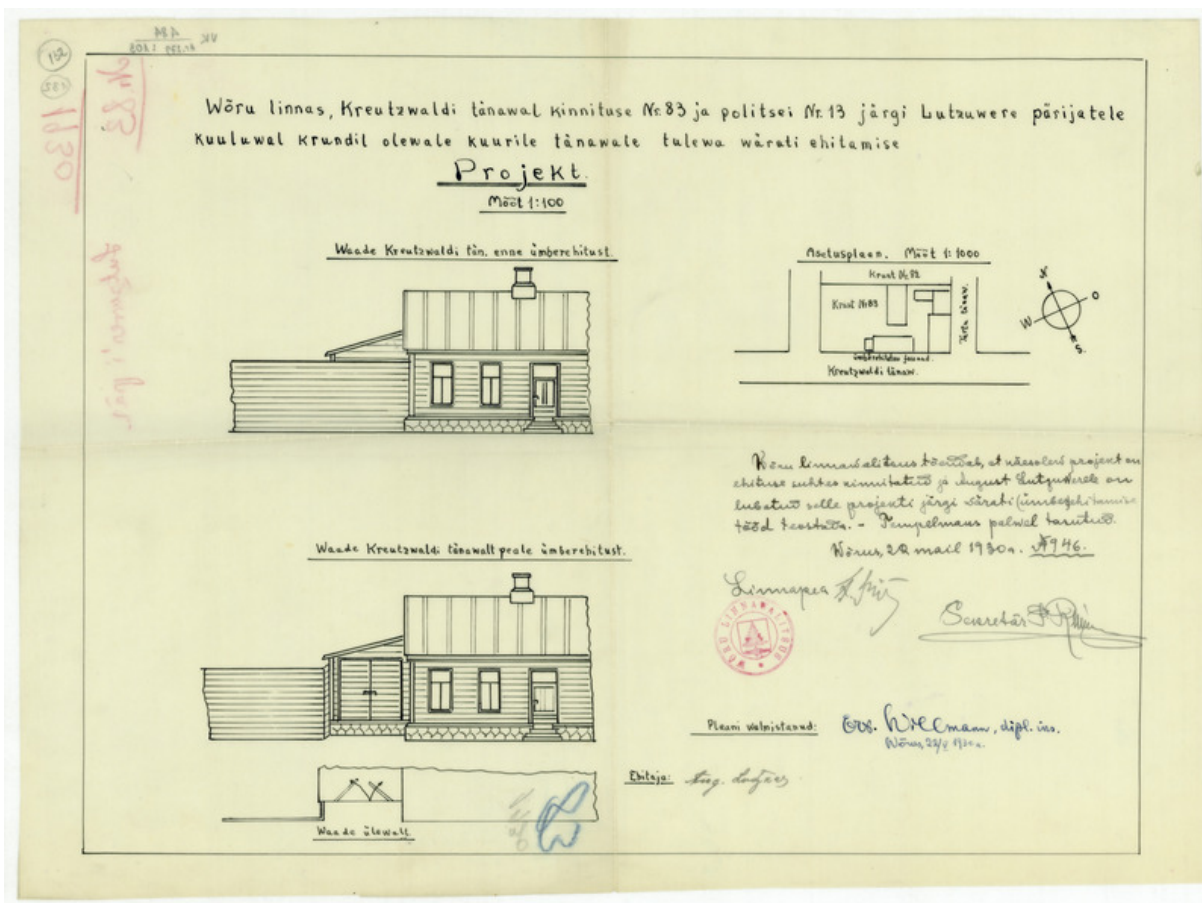 132
1930
Nr. 83
Wõru linnas, Kreutzwaldi tänawal kinnituse Nr. 83 ja politsei Nr. 13 järgi Lutzuwere pärijatele
kuuluwal krundil olewale kuurile tänawale tulewa wärati ehitamise
Projekt.
Mõõt 1:100
Waade Kreutzwaldi tän. enne ümberehitust.
Asetusplaan. Mõõt 1:1000
Krunt Nr. 82
Krunt Nr 83
Tartu tänaw.
N
O
W
S.
ümberehitaw fassaad.
Kreutzwaldi tänaw.
Wõru linnawalitsus tõendab, et käesolew projekt on
ehituse suhtes kinnitatud ja August Lutzuwerele on
lubatud selle projekti järgi wärati (ümber)ehitamise
tööd teostada. - Tempelmaks palwel tasutud.
Wõrus, 22 mail 1930 a. №946.
Linnapea
Sekretär
WÕRU LINNAWALITSUS
Waade Kreutzwaldi tänawalt peale ümberehitust.
Plaani walmistanud:
dipl. ins.
Wõrus, 22/V 1930 a.
Ehitaja: Aug.
Waade ülewalt.